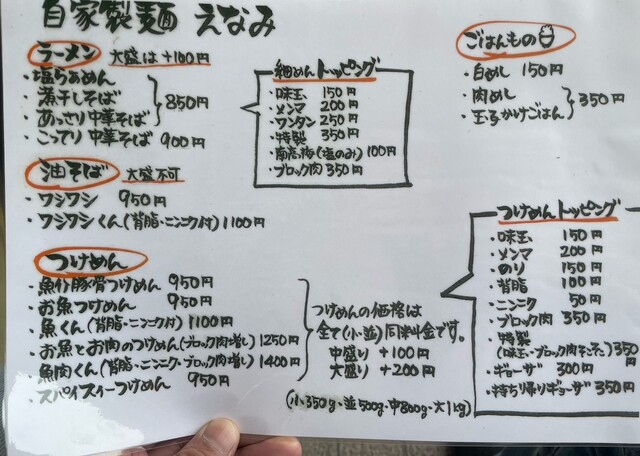 自家製麺 えなみ
ラーメン 大盛は+100円
・塩らぁめん
・煮干しそば
・あっさり中華そば
850円
・こってり中華そば 900円
油そば 大盛不可
・ワシワシ 950円
・ワシワシくん(背脂・ニンニク付) 1100円
つけめん
・魚介豚骨つけめん 950円
・お魚つけめん 950円
・魚くん(背脂・ニンニク付) 1100円
・お魚とお肉のつけめん(ブロック肉増し) 1250円
・魚肉くん(背脂・ニンニク・ブロック肉増し) 1400円
・スパイスィーつけめん 950円
つけめんの価格は
全て(小・並)同料金です。
中盛り +100円
大盛り +200円
(小350g・並500g・中800g・大1kg)
細めんトッピング
・味玉 150円
・メンマ 200円
・ワンタン 250円
・特製 350円
・南高梅(塩のみ) 100円
・ブロック肉 350円
ごはんもの
・白めし 150円
・肉めし
・玉子かけごはん
350円
つけめんトッピング
・味玉 150円
・メンマ 200円
・のり 150円
・背脂 100円
・ニンニク 50円
・ブロック肉 350円
・特製
(味玉・ブロック肉) 350円
・ギョーザ 300円
・持ち帰りギョーザ 350円